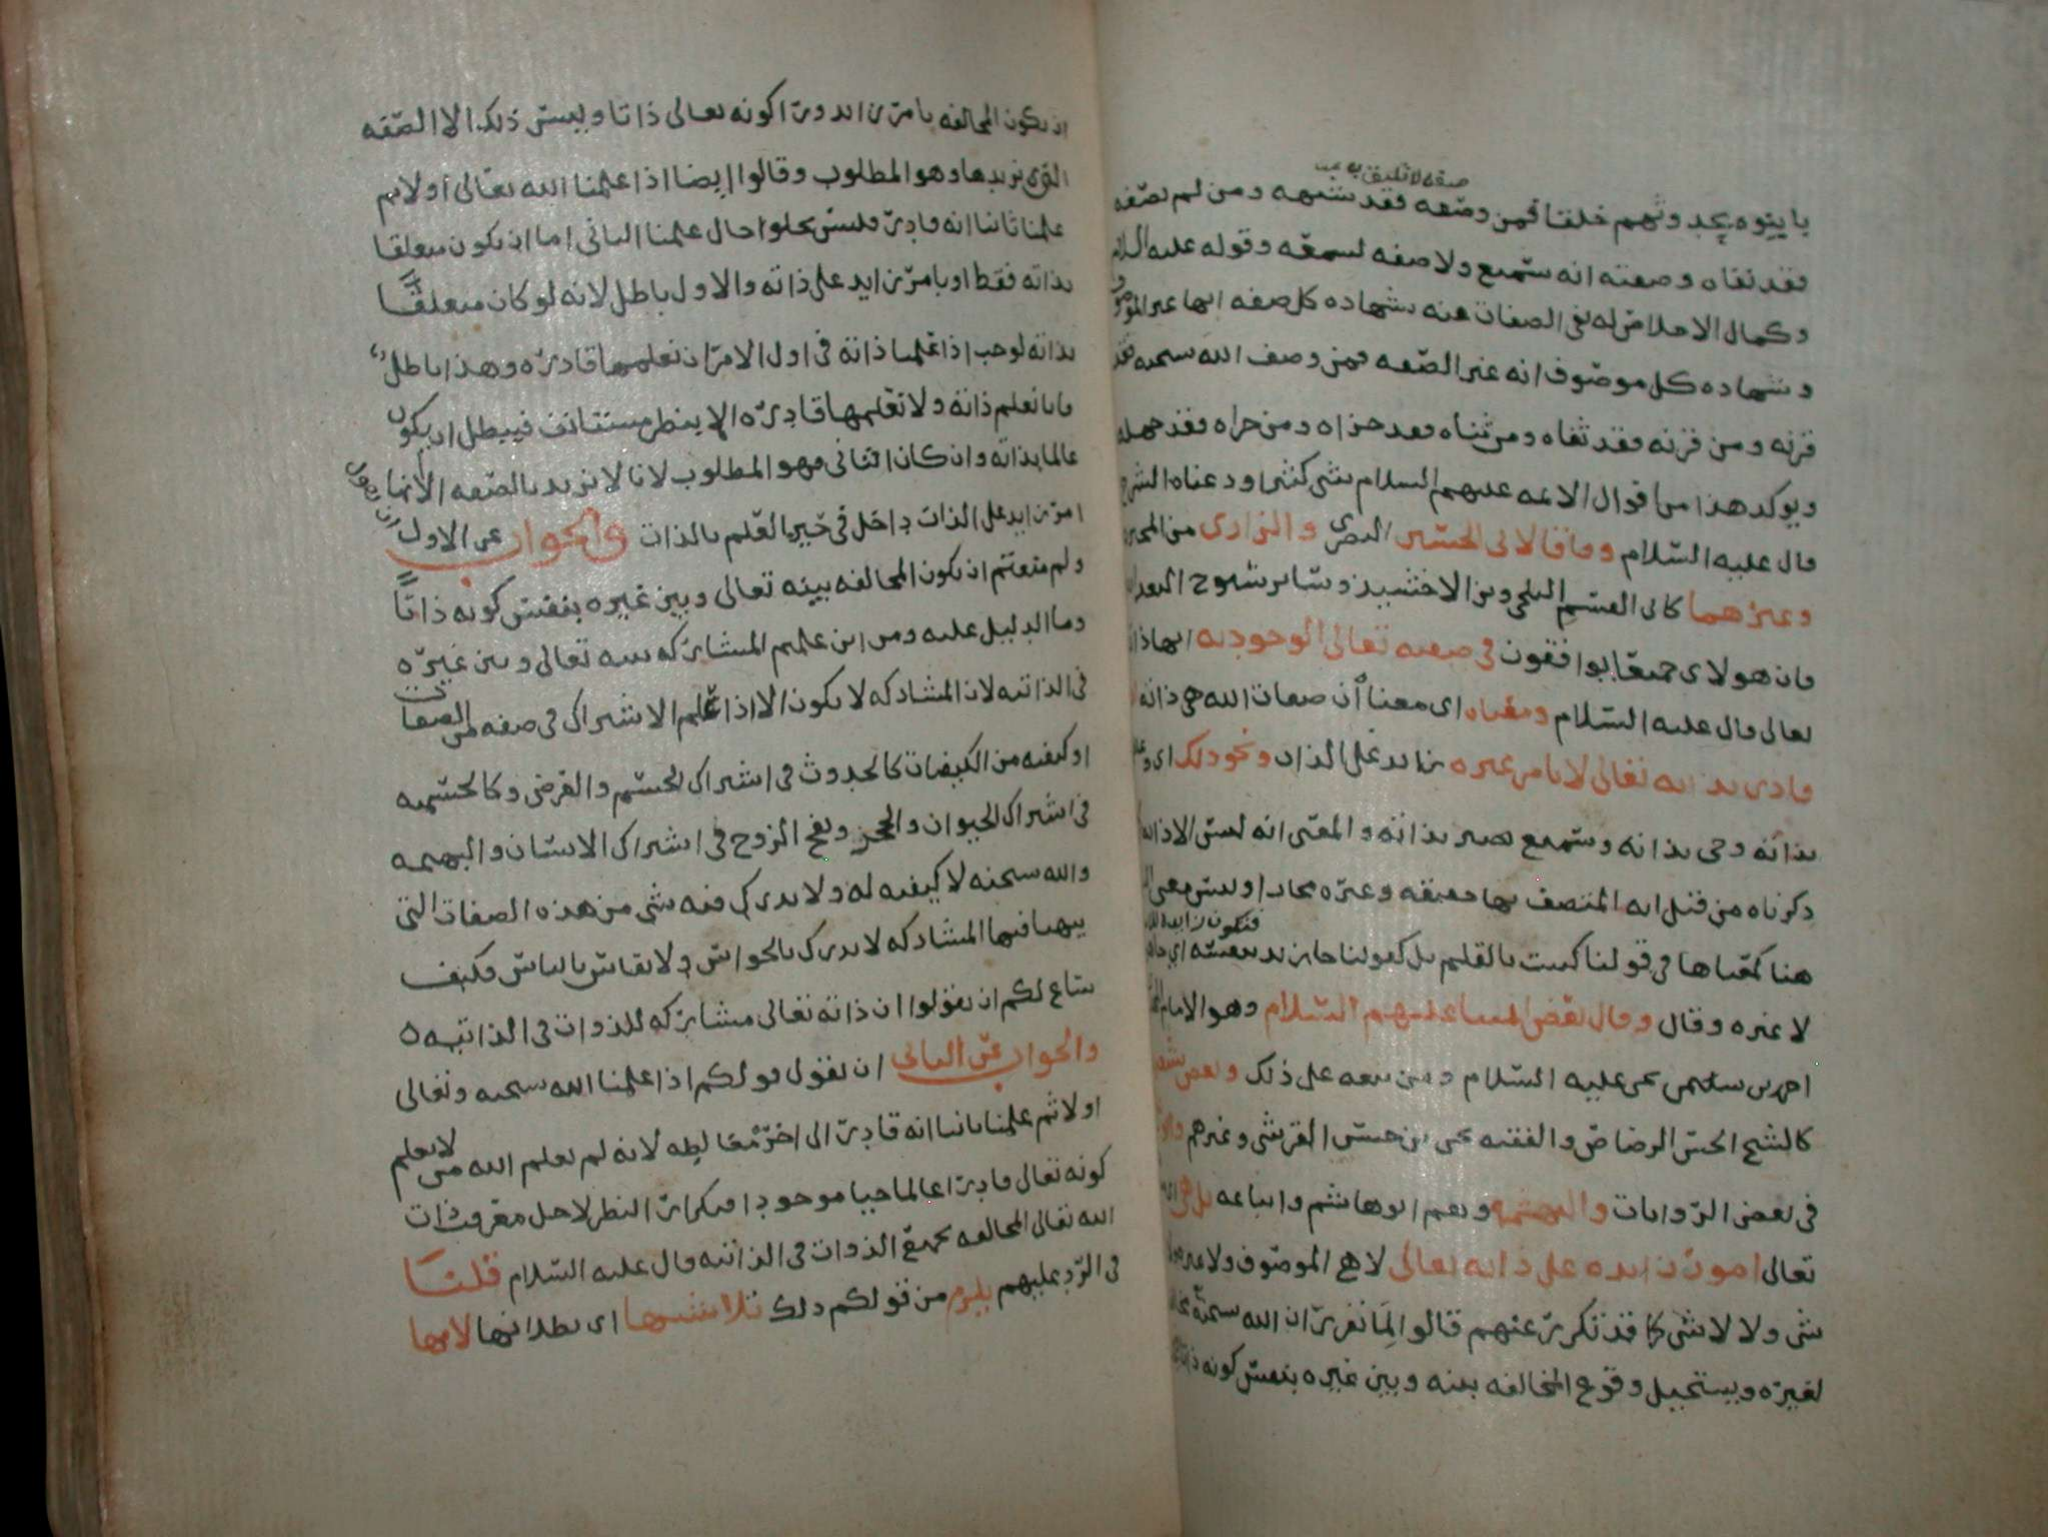 صفه لا تليق به
يا بنوه بحد وثهم خلقا فمن وصفه فقد شبهه ومن لم يصفه
فقد نفاه وصفته انه سميع ولا صفه لسمعه وقوله عليه السلام
وكمال الاخلاص له نفي الصفات عنه بشهاده كل صفه انها غير الموصوف
وشهاده كل موصوف انه غير الصفه فمن وصف الله سبحنه فقد
قرنه ومن قرنه فقد ثناه ومن ثناه فقد جزاه ومن جزاه فقد جهله
ويوكد هذا من اقوال الائمه عليهم السلام شي كثير اودعناه الشرح
قال عليه السلام وفاقا لابي الحسين البصري والرازي من المجبره
وغيرهما كابي القسم البلخي وبن الاخشيد وسائر شيوح البغداد
فان هولاي جميعا يوافقون في صفته تعالى الوجوديه انها ذاته
تعالى قال عليه السلام ومعناه اي معنا ان صفات الله هي ذاته
قادر بذاته تعالى لا بامر غيره زايد على الذات ونحو ذلك اي
بذاته وحي بذاته وسميع بصير بذاته والمعنى انه ليس الا ذاته
ذكرناه من قبل انه المتصف بها حقيقه وغيره مجازا وليس معنى
فتكون زايده
هنا كمعناها في قولنا كتبت بالقلم بل كقولنا جا زيد بنفسه اي
لا غيره وقال وقال بعض ائمتنا عليهم السلام وهو الامام
احمد بن سليمن عليه السلام ومن تبعه على ذلك وبعض
كالشيخ الحسن الرصاص والفقيه يحي بن حسن القرشي وغيرهم
في بعض الروايات والبهشميه وهم ابو هاشم واتباعه بل هي
تعالى امور زايده على ذاته تعالى لا هي الموصوف ولا غيره
شي ولا لا شي كما قد تكرر عنهم قالوا لما تقرر ان الله سبحنه
لغيره ويستحيل وقوع المخالفه بينه وبين غيره بنفس كونه ذاتا
ان يكون المخالفه بامر زايد ورا كونه تعالى ذاتا وليس ذلك الا الصفه
التي نريدها وهو المطلوب وقالوا ايضا اذا علمنا الله تعالى اولا ثم
علمنا ثانيا انه قادر فليس يخلوا حال علمنا الثاني اما ان يكون متعلقا
بذاته فقط او بامر زايد على ذاته والاول باطل لانه لو كان متعلقا
بذاته لوجب اذا علمنا ذاته في اول الامر ان نعلمها قادره وهذا باطل
فانا نعلم ذاته ولا نعلمها قادره الا بنظر مستانف فيبطل ان يكون
عالما بذاته وان كان الثاني فهو المطلوب لانا لا نريد بالصفه الا انها
امر زايد على الذات داخل في حيز العلم بالذات والجواب عن الاول ان نقول
ولم منعتم ان يكون المخالفه بينه تعالى وبين غيره بنفس كونه ذاتا
وما الدليل عليه ومن اين علمتم المشاركه بينه تعالى وبين غيره
في الذاتيه لان المشاركه لا يكون الا اذا علم الاشتراك في صفه من الصفات
او كيفيه من الكيفيات كالحدوث في اشتراك الجسم والعرض وكالجسميه
في اشتراك الحيوان والحجر ونفخ الروح في اشتراك الانسان والبهيمه
والله سبحنه لا كيفيه له ولا يدرك فيه شي من هذه الصفات التي
يتهيا فيها المشاركه لا يدرك بالحواس ولا يقاس بالناس فكيف
ساغ لكم ان تقولوا ان ذاته تعالى مشاركه للذوات في الذاتيه
والجواب عن الثاني ان نقول قولكم اذا علمنا الله سبحنه وتعالى
اولا ثم علمنا ثانيا انه قادر الى اخره مغالطه لانه لم يعلم الله من لا يعلم
كونه تعالى قادرا عالما حيا موجودا فتكرار النظر لاجل معرفت ذات
الله تعالى المخالفه لجميع الذوات في الذاتيه قال عليه السلام قلنا
في الرد عليهم يلزم من قولكم ذلك تلاشيها اي بطلانها لانها